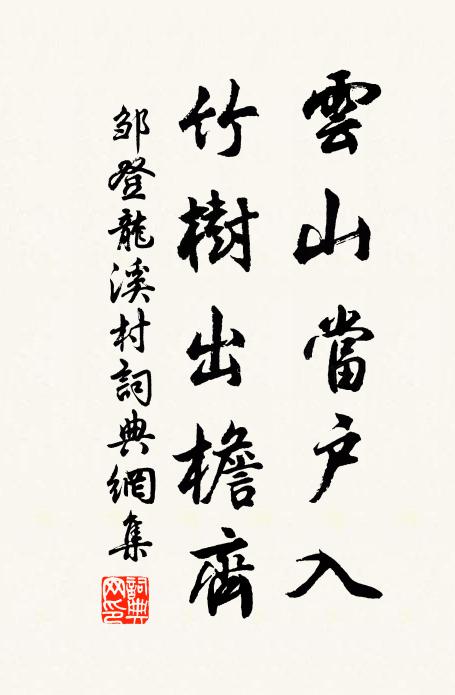 雲山當户入
竹樹出檐齊
邹登龍溪村詞典網集
詞典网印